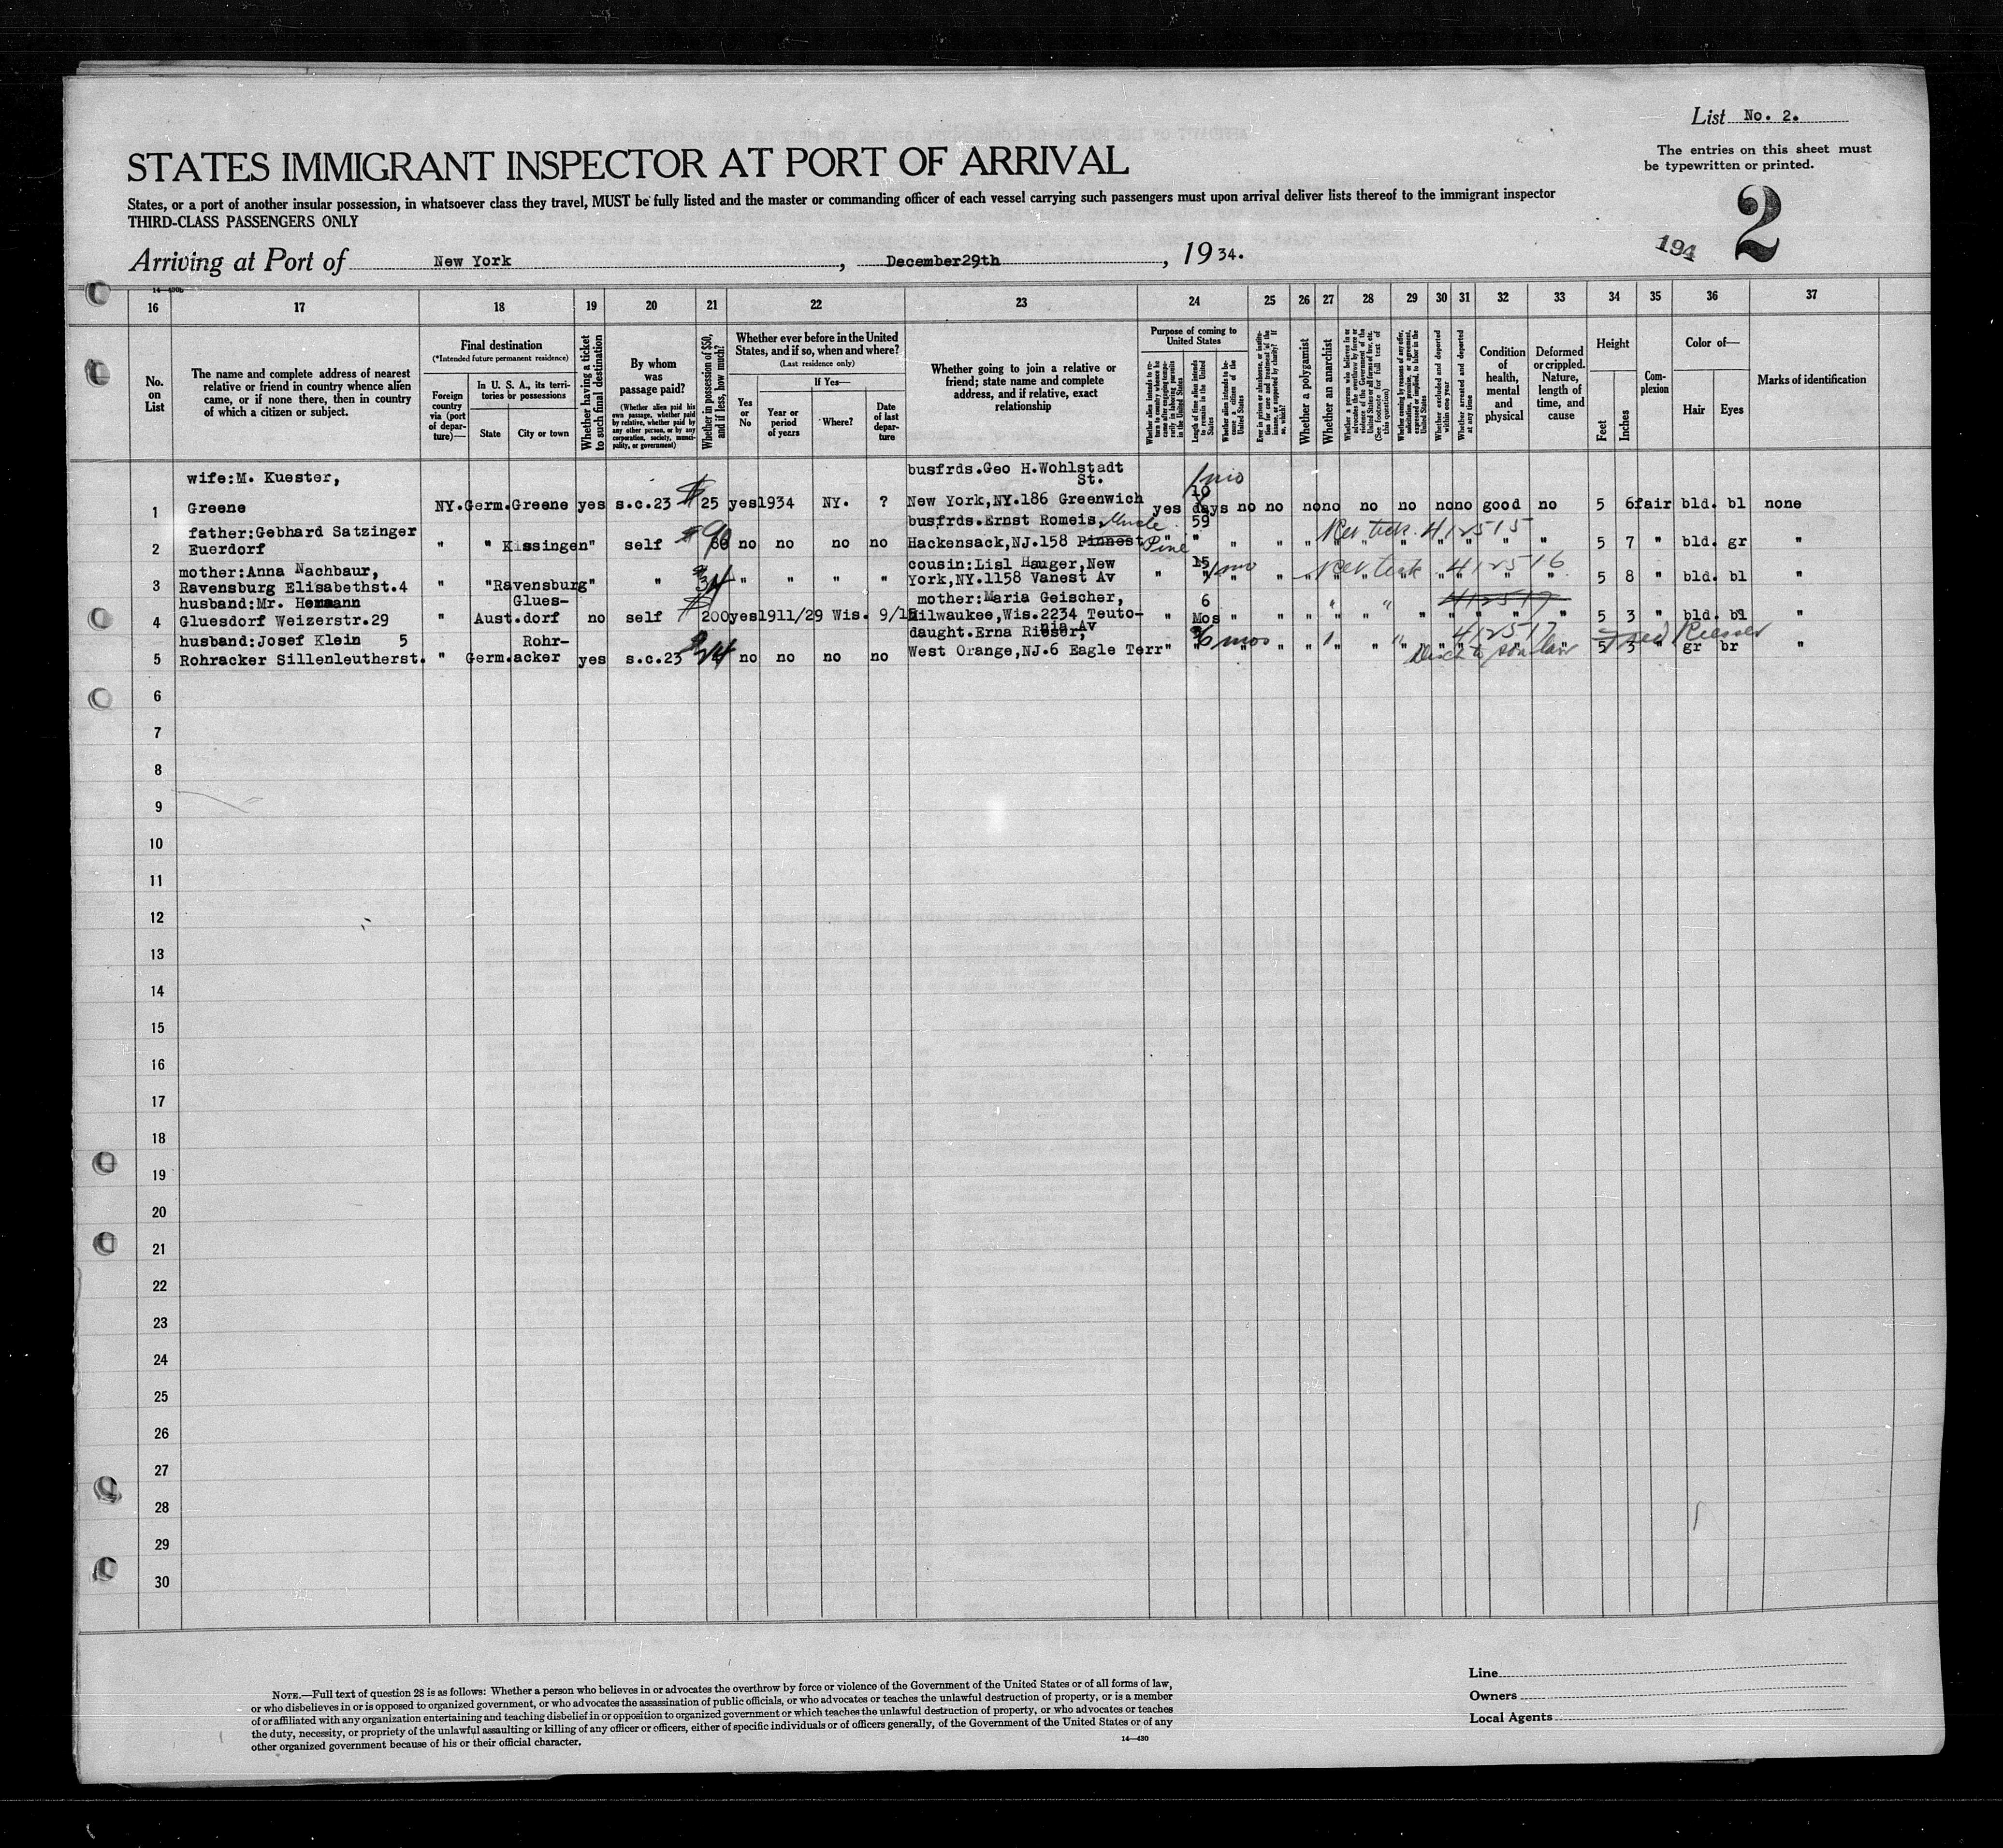 List No. 2.
The entries on this sheet must
be typewritten or printed.
STATES IMMIGRANT INSPECTOR AT PORT OF ARRIVAL
States, or a port of another insular possession, in whatsoever class they travel, MUST be fully listed and the master or commanding officer of each vessel carrying such passengers must upon arrival deliver lists thereof to the immigrant inspector
THIRD-CLASS PASSENGERS ONLY
2
194
Arriving at Port of New York, December 29th, 1934.
16 17 18 19 20 21 22 23 24 25 26 27 28 29 30 31 32 33 34 35 36 37
No. on List
The name and complete address of nearest
relative or friend in country whence alien
came, or if none there, then in country
of which a citizen or subject.
Final destination
(*Intended future permanent residence)
Foreign country via (port of departure)—
In U. S. A., its territories or possessions
State
City or town
Whether having a ticket to such final destination
By whom was passage paid?
(Whether alien paid his own passage, whether paid by relative, whether paid by any other person, or by any corporation, society, municipality, or government)
Whether in possession of $50, and if less, how much?
Whether ever before in the United
States, and if so, when and where?
(Last residence only)
If Yes—
Yes or No
Year or period of years
Where?
Date of last departure
Whether going to join a relative or
friend; state name and complete
address, and if relative, exact
relationship
Purpose of coming to United States
Length of time alien intends to remain in the United States
Whether alien intends to become a citizen of the United States
Whether a polygamist
Whether an anarchist
Whether excluded and deported within one year
Whether arrested and deported at any time
Condition of health, mental and physical
Deformed or crippled. Nature, length of time, and cause
Height
Feet
Inches
Complexion
Color of—
Hair
Eyes
Marks of identification
wife:M. Kuester, busfrds.Geo H.Wohlstadt 1 mo
St. 10
1 Greene NY.Germ.Greene yes s.c.23 $ 25 yes1934 NY. ? New York,NY.186 Greenwich yes days no no nono no no nono good no 5 6fair bld. bl none
father:Gebhard Satzinger busfrds.Ernst Romeis, Uncle 59
2 Euerdorf " " Kissingen" self $90 no no no no Hackensack,NJ.158 Pinnest Pine " " " " 412515 " " " 5 7 " bld. gr "
mother:Anna Nachbaur, cousin:Lisl Hauger,New 15
3 Ravensburg Elisabethst.4 " "Ravensburg" " $34 " " " " York,NY.1158 Vanest Av " 1 mo " " " 412516 " " 5 8 " bld. bl "
husband:Mr. Hermann Glues- mother:Maria Geischer, 6 412517
4 Gluesdorf Weizerstr.29 " Aust.dorf no self $ 200yes1911/29 Wis. 9/1 Milwaukee,Wis.2234 Teuto- " Mos " " " " " " " " 5 3 " bld. bl "
husband:Josef Klein 5 Rohr- nia Av daught.Erna Rieser, 6 mos 412517 Fred Riesser
5 Rohracker Sillenleutherst. " Germ.acker yes s.c.23 $24 no no no no West Orange,NJ.6 Eagle Terr" " " " " " Disch to son law 5 3 " gr br "
6
7
8
9
10
11
12
13
14
15
16
17
18
19
20
21
22
23
24
25
26
27
28
29
30
NOTE.—Full text of question 28 is as follows: Whether a person who believes in or advocates the overthrow by force or violence of the Government of the United States or of all forms of law,
or who disbelieves in or is opposed to organized government, or who advocates the assassination of public officials, or who advocates or teaches the unlawful destruction of property, or is a member
of or affiliated with any organization entertaining and teaching disbelief in or opposition to organized government or which teaches the unlawful destruction of property, or who advocates or teaches
the duty, necessity, or propriety of the unlawful assaulting or killing of any officer or officers, either of specific individuals or of officers generally, of the Government of the United States or of any
other organized government because of his or their official character.
14—430
Line
Owners
Local Agents